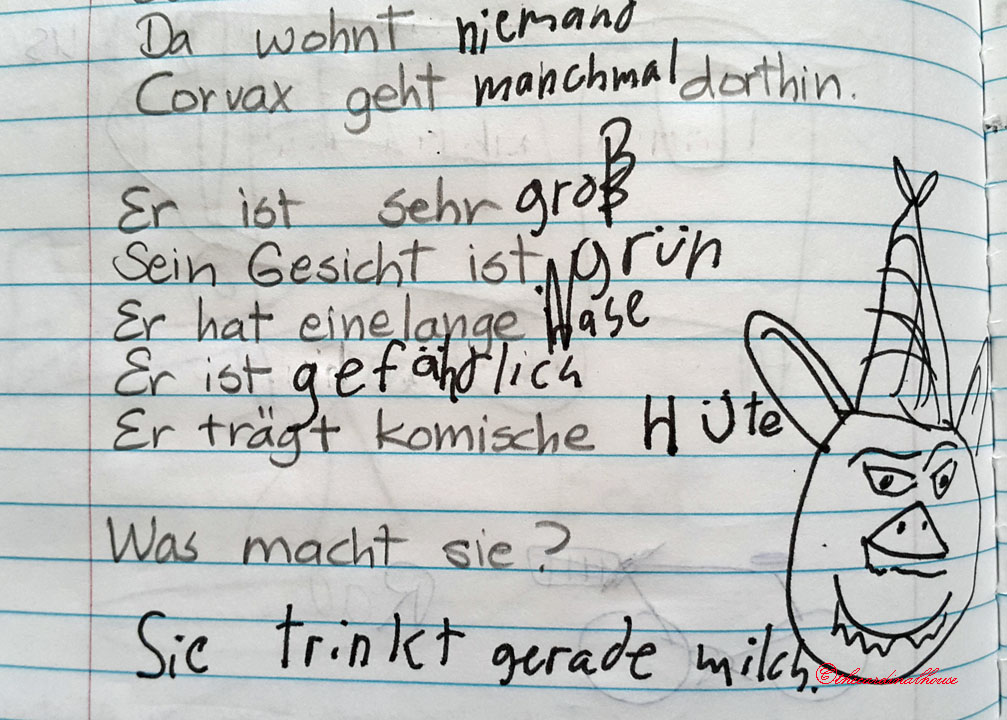 Da wohnt niemand
Corvax geht manchmal dorthin.
Er ist sehr groß
Sein Gesicht ist grün
Er hat eine lange Nase
Er ist gefährlich
Er trägt komische Hüte
Was macht sie?
Sie trinkt gerade milch.